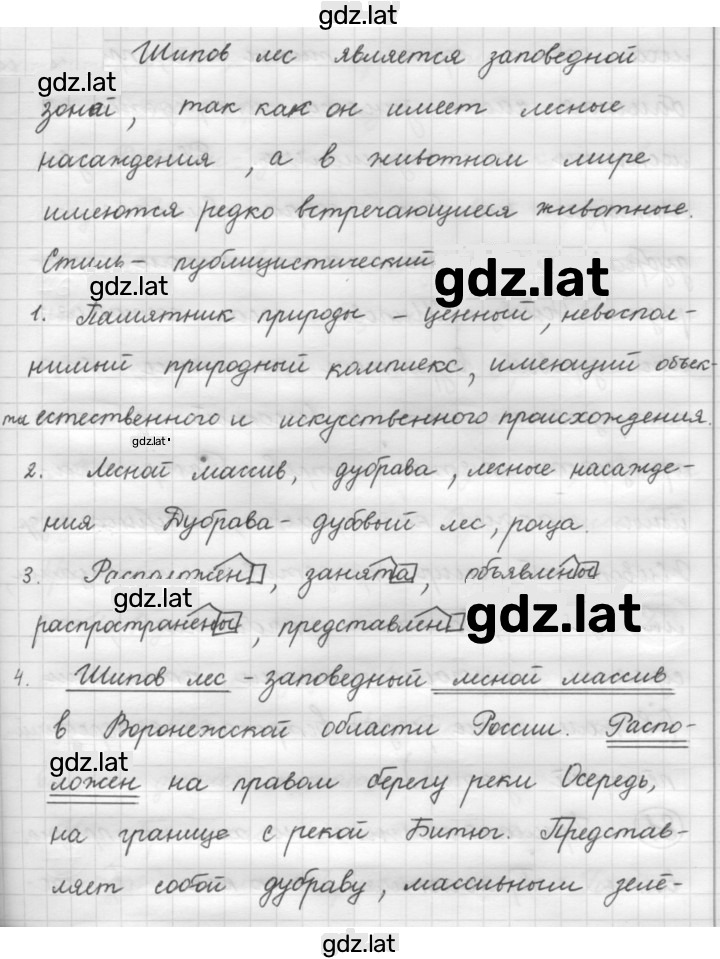 gdz.lat
Шипов лес является заповедной
gdz.lat
зоной, так как он имеет лесные
насаждения, а в животном мире
имеются редко встречающиеся животные.
Стиль – публицистический
gdz.lat
gdz.lat
1. Памятник природы – ценный, невоспол-
нимый природный комплекс, имеющий объек-
ты естественного и искусственного происхождения.
gdz.lat
2. Лесной массив, дубрава, лесные насажде-
ния Дубрава – дубовый лес, роща.
3. Расположен, занята, объявлены
gdz.lat
gdz.lat
распространены, представлен
4. Шипов лес – заповедный лесной массив
в Воронежской области России. Распо-
gdz.lat
ложен на правом берегу реки Осередь,
на границе с рекой Битюг. Представ-
ляет собой дубраву, массивным зелё-
gdz.lat